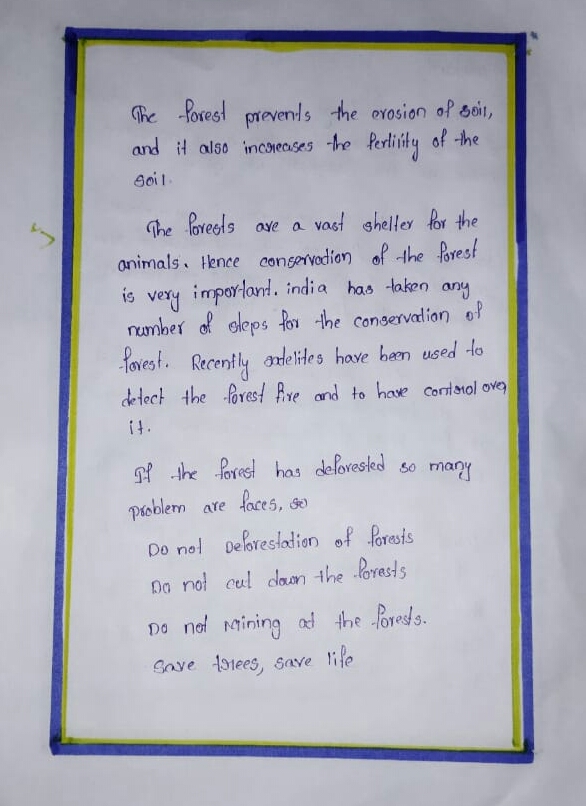 The forest prevents the erosion of soil,
and it also increases the fertility of the
soil.
The forests are a vast shelter for the
animals. Hence conservation of the forest
is very important. india has taken any
number of steps for the conservation of
forest. Recently satelites have been used to
detect the forest fire and to have control over
it.
If the forest has deforested so many
problem are faces, so
Do not Deforestation of forests
Do not cut down the forests
Do not Mining at the forests.
Save trees, save life